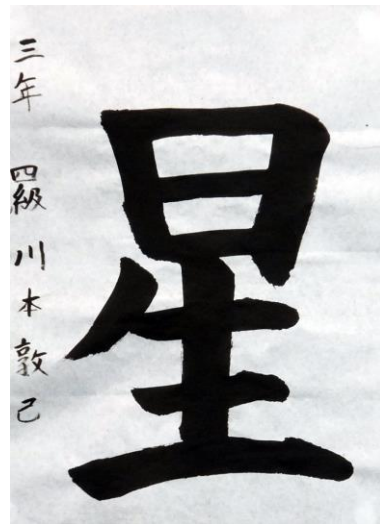 星
三年 四級 川本敦己